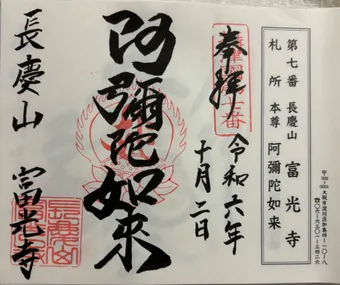 第七番 長慶山 富光寺
札所 本尊 阿彌陀如来
奉拝
令和六年
十月二日
阿彌陀如来
長慶山 富光寺